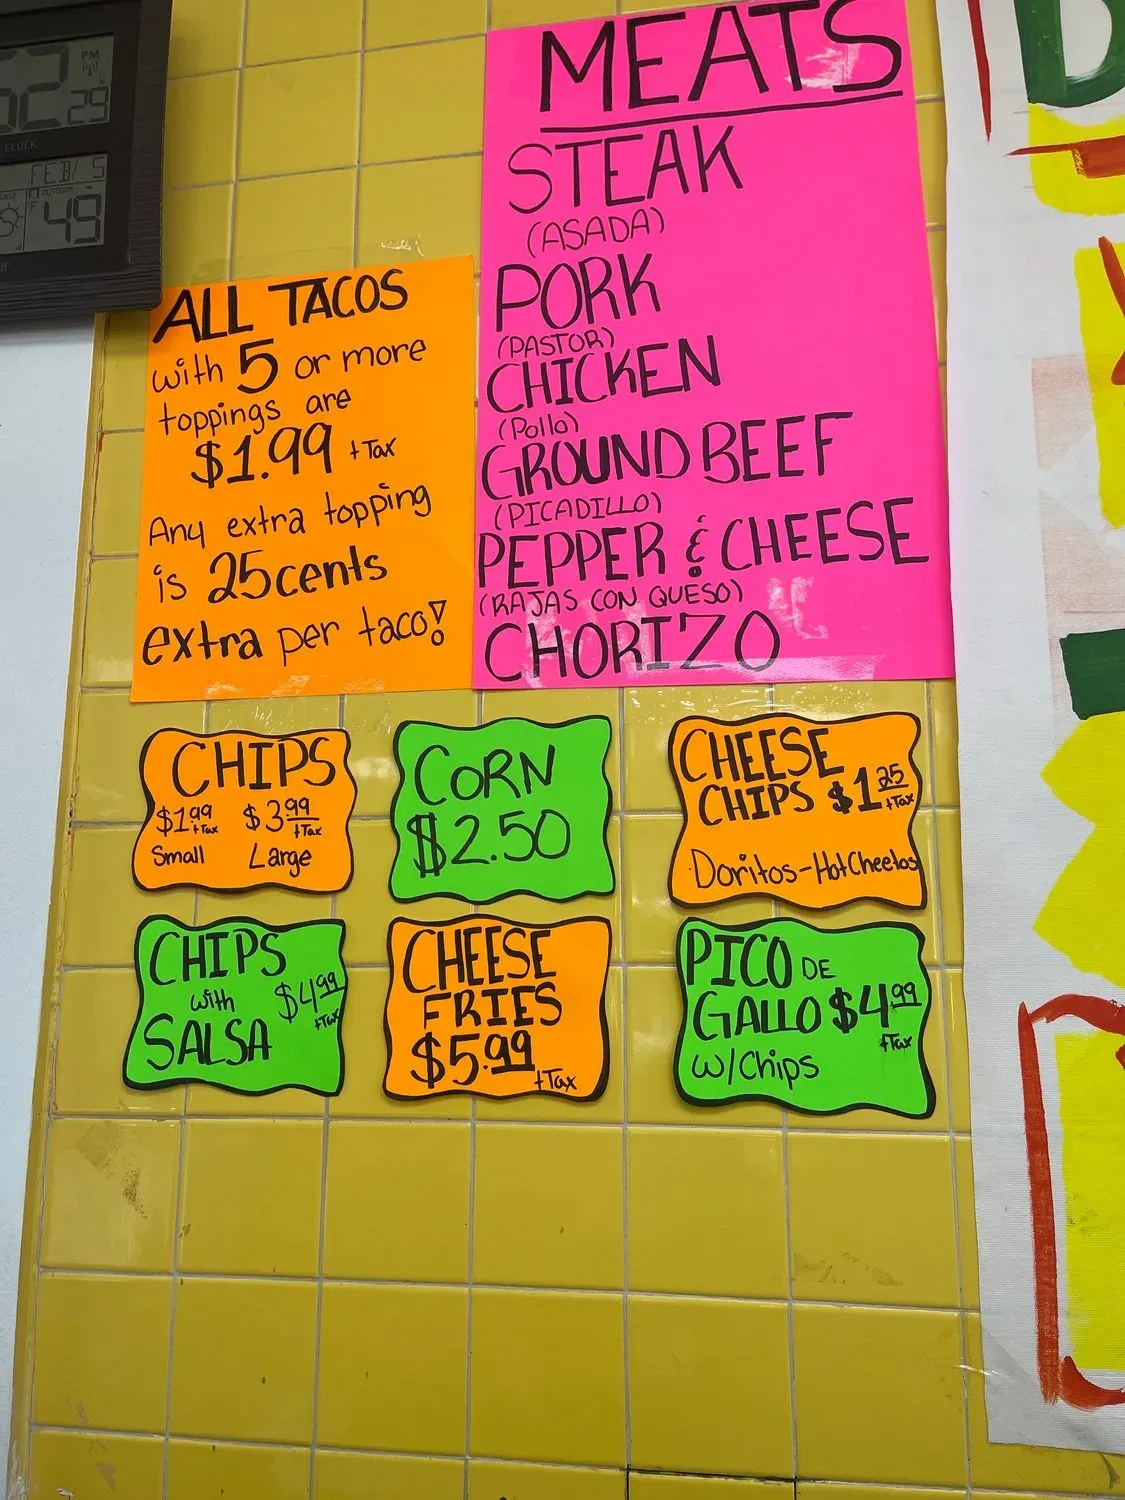 PM
29
CLOCK
FEB/ 5
OUTDOOR
°F 49
MEATS
STEAK
(ASADA)
PORK
(PASTOR)
CHICKEN
(Pollo)
GROUND BEEF
(PICADILLO)
PEPPER & CHEESE
(RAJAS CON QUESO)
CHORIZO
ALL TACOS
with 5 or more
toppings are
$1.99 + Tax
Any extra topping
is 25cents
extra per taco!
CHIPS
$1.99 +Tax $3.99 +Tax
Small Large
CORN
$2.50
CHEESE
CHIPS $1.25 +Tax
Doritos-HotCheetos
CHIPS
with $4.99 +Tax
SALSA
CHEESE
FRIES
$5.99 +Tax
PICO DE
GALLO $4.99
w/Chips +Tax